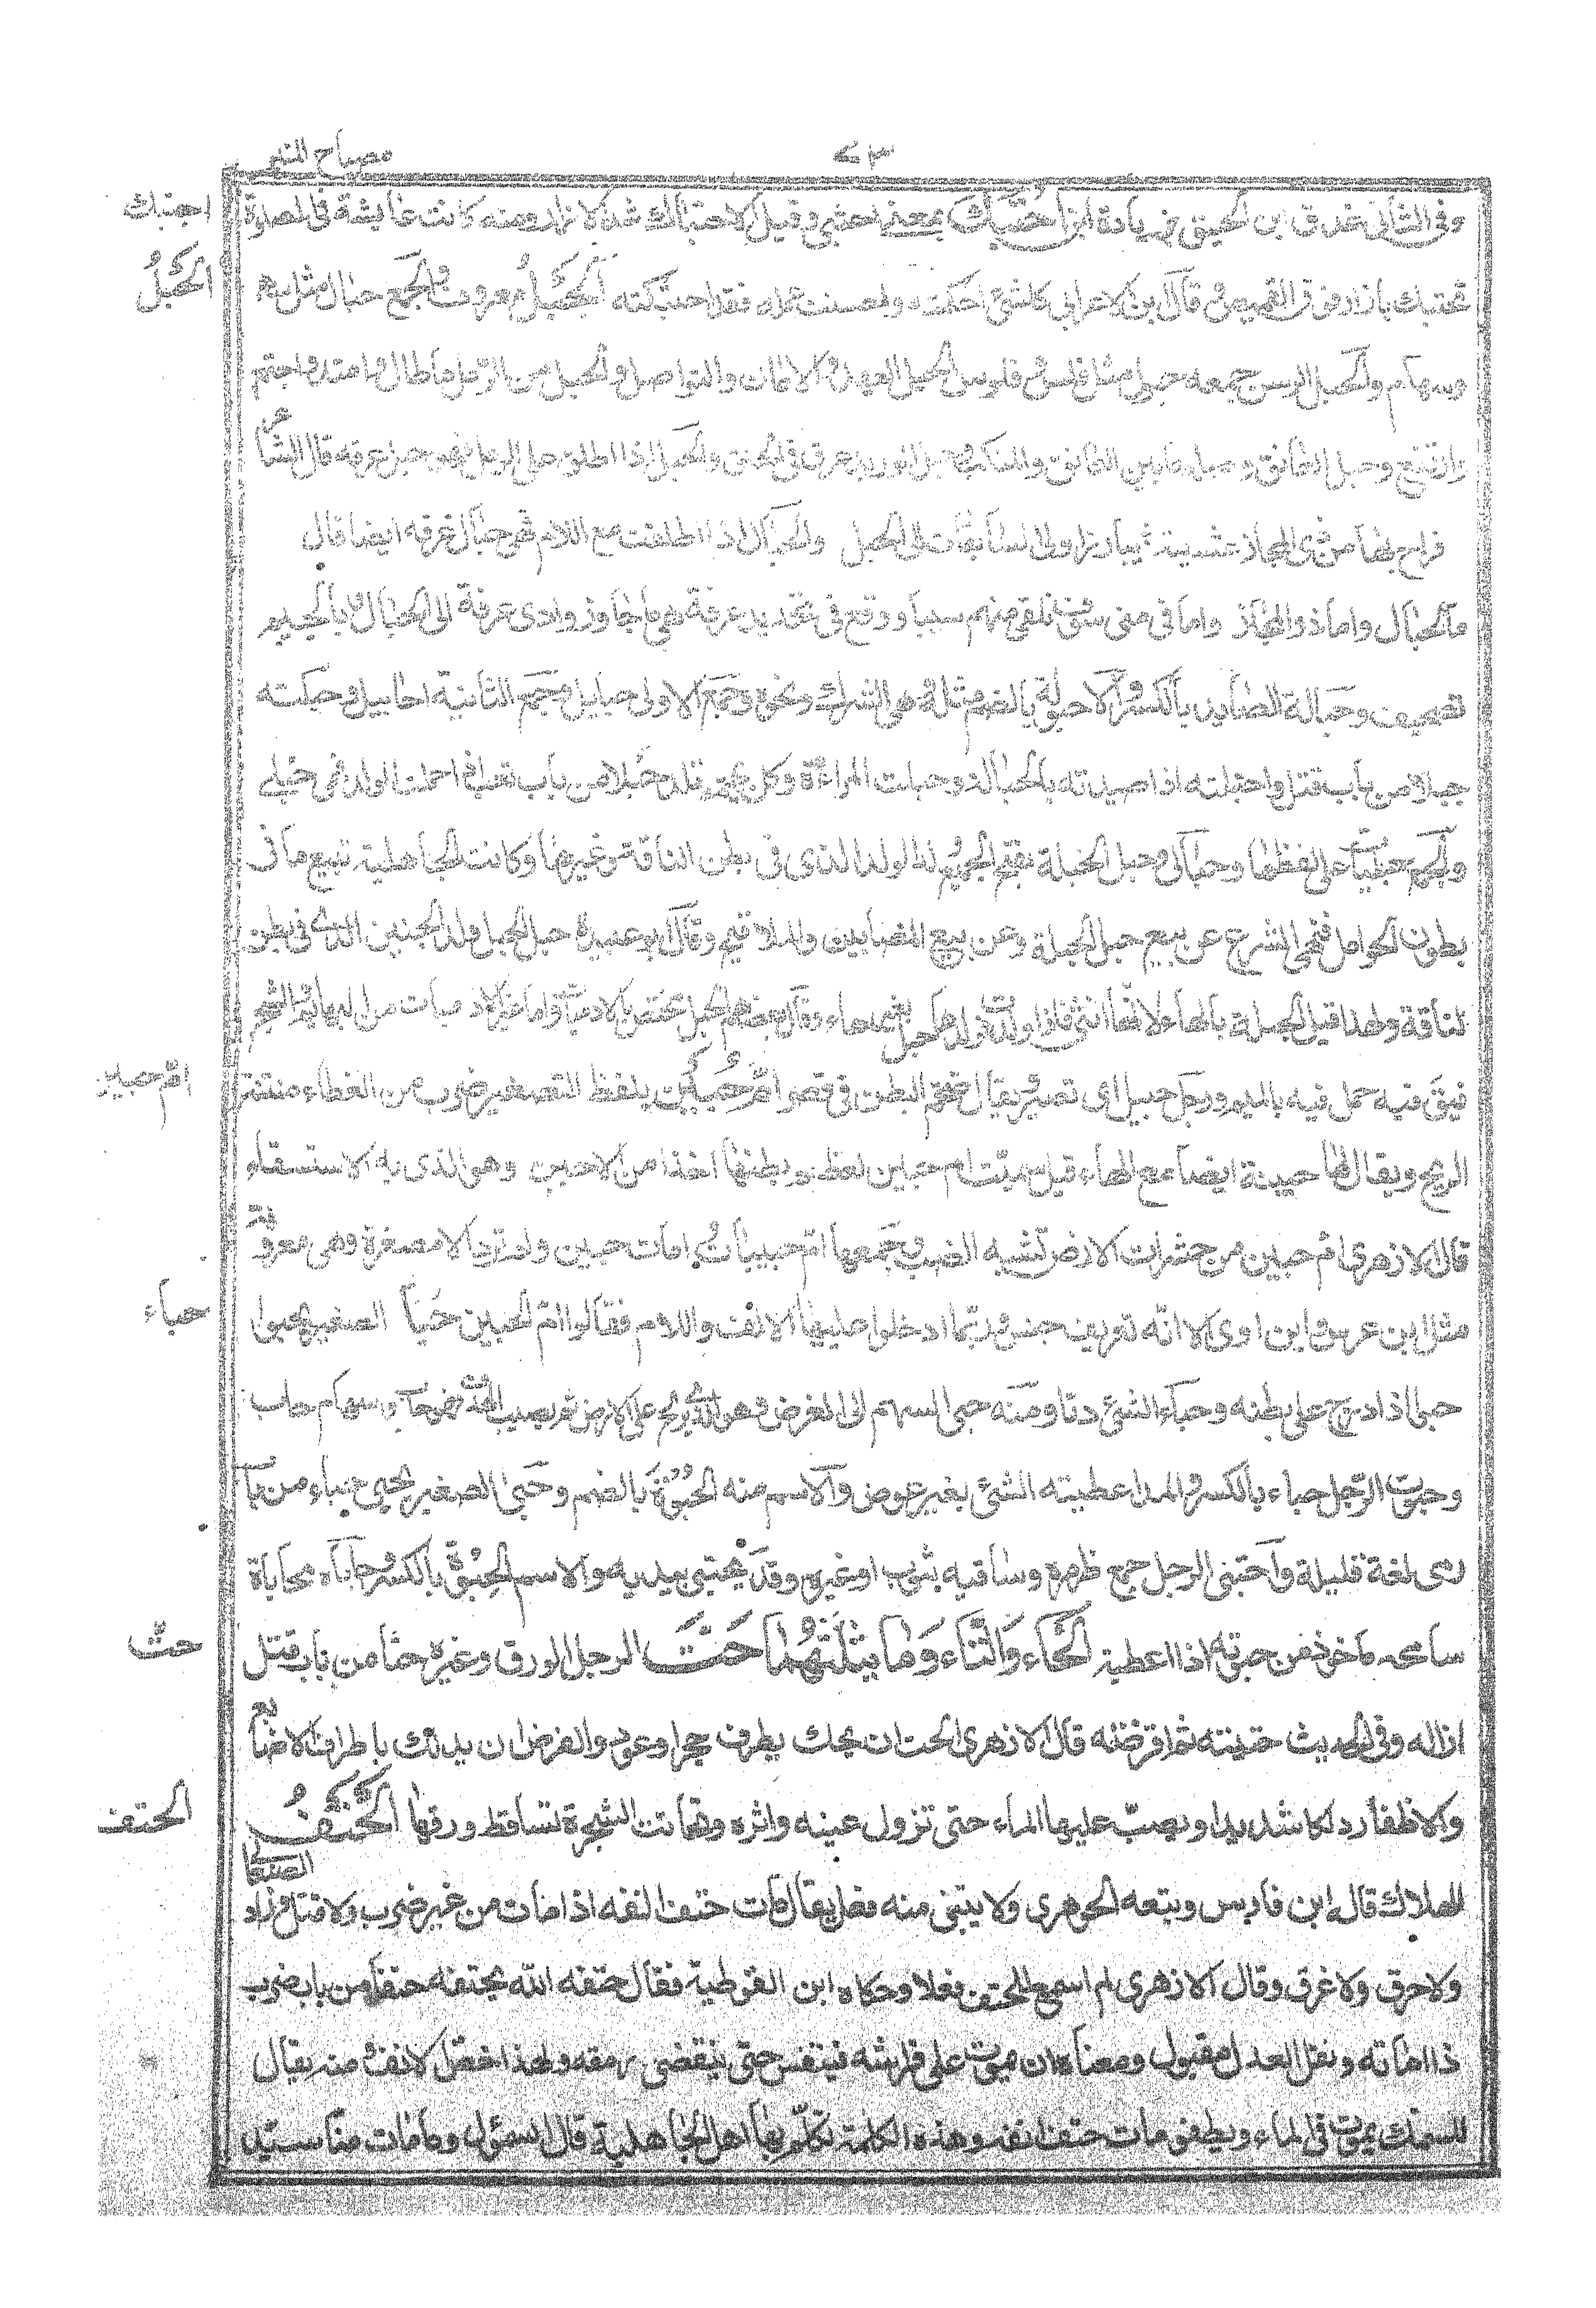 مصباح المنير
٧٣
وفى الثانى عذق ابن الحبيق بزيادة ابن احتبك بمعنى احتبى وقيل الاحتباك شد الازار ومنه كانت عايشة فى الصلوة
احتبك
تحتبك بازار فوق القميص وقال ابن الاعرابى كل شئ احكمته واحسنت عمله فقد احتبكته الحبل معروف والجمع حبال مثل سهم
الحبل
وسهام والحبل الرسن جمعه حبول مثل فلس وفلوس والحبل العهد والامان والتواصل والحبل من الرمل ما طال وامتد واجتمع
وارتفع وحبل العاتق وصل ما بين العاتق والمنكب وحبل الوريد عرق فى الحلق والحبل اذا اطلق حبل الرمل فهو حبل عرفه قال الشاعر
فراح بها من ذى المجاز عشية يبادر اولى السابقات الى الحبل والحبال اذا اطلقت مع اللام فهى حبال عرفه ايضا قال
ما الحبال واما ذو المجاز واما فى منى سوف تلقى منهم سببا ووقع فى تحديد عرفة هى ما جاوز وادى عرفة الى الحبال وبالجيم
تصحيف وحبالة الصايد بالكسر والاحبولة بالضم مثله وهى الشرك ونحوه وجمع الاولى حبايل وجمع الثانية احابيل وحبلته
حبلا من باب قتل واحتبلته اذا صيدته بالحبالة وحبلت المراءة وكل بهيمة تلد حبلا من باب تعب اذا حملت الولد فهى حبلى
والجمع حبليات على لفظها وحبالى وحبل الحبلة بفتح الجميع ولد الولد الذى فى بطن الناقة وغيرها وكانت الجاهلية تبيع ما فى
بطون الحوامل فنهى الشرع عن بيع حبل الحبلة وعن بيع المضامين والملاقيح وقال ابو عبيدة حبل الحبل ولد الجنين الذى فى بطن
الناقة ولهذا قيل الحبلة بالهاء لانها انثى فاذا ولدت فولدها حبل بغير هاء وقال بعضهم الحبل مختص بالادميات واما غير الادميات من البهايم والشجر
فيق فيه حمل فيه بالميم ورجل حبين اى قصير يقال ضخم البطن فى قصر ام حبين بلفظ التصغير ضرب من العظاء منتنة
ام حبين
الريح ويقال لها حبينة ايضا مع الهاء قيل سميت ام حبين لعظم بطنها اخذا من الاحبن وهو الذى به الاستسقاء
قال الازهرى ام حبين من حشرات الارض تشبه الضب وجمعها ام حبيبات وامات حبين ولم ترد الا مصغرة وهى معرفة
مثل ابن عرس وابن اوى الا انه تعريف جنس وربما ادخلوا عليها الالف واللام فقالوا ام الحبين حبا الصغير يحبوا
حباء
حبوا اذا درج على بطنه وحباء الشئ دنا ومنه حبى السهم الى الغرض وهو الذى يزلج على الارض ثم يصيب الهدف فهو حاب وسهام حاب
وحبوت الرجل حباء بالكسر والمد اعطيته الشئ بغير عوض والاسم منه الحبوة بالضم وحبى الصغير يحبى حباء من باب
رمى لغة قليلة واحتبى الرجل جمع ظهره وساقيه بثوب او غيره وقد يحتبى بيديه والاسم الحبوة بالكسر وحاباه محاباة
سامحه ماخوذ من حبوته اذا اعطيته الحاء والتاء وما يثلثهما حت الرجل الورق وغيره حتا من باب قتل
حت
ازاله وفى الحديث حتيته ثم اقرضته قال الازهرى الحت ان يحك بطرف حجر او عود والقرض ان يدلك باطراف الاصابع
والاظفار دلكا شديدا ويصب عليها الماء حتى تزول عينه واثره وتحاتت الشجرة تساقط ورقها الحتف
الحتف
الهلاك قال ابن فارس وتبعه الجوهرى ولا يبنى منه فعل يقال مات حتف انفه اذا مات من غير ضرب ولا قتل وزاد الصغانى
ولا حرق ولا غرق وقال الازهرى لم اسمع للحتف فعلا وحكاه ابن القوطية فقال حتفه الله يحتفه حتفا من باب ضرب
اذا اماته ونقل العدل مقبول ومعناه ان يموت على فراشه فيتنفس حتى ينقضى رمقه ولهذا خص الانف ومنه يقال
للسمك يموت فى الماء ويطفو مات حتف انفه وهذه الكلمة تكلم بها اهل الجاهلية قال السمؤل وما مات منا سيد